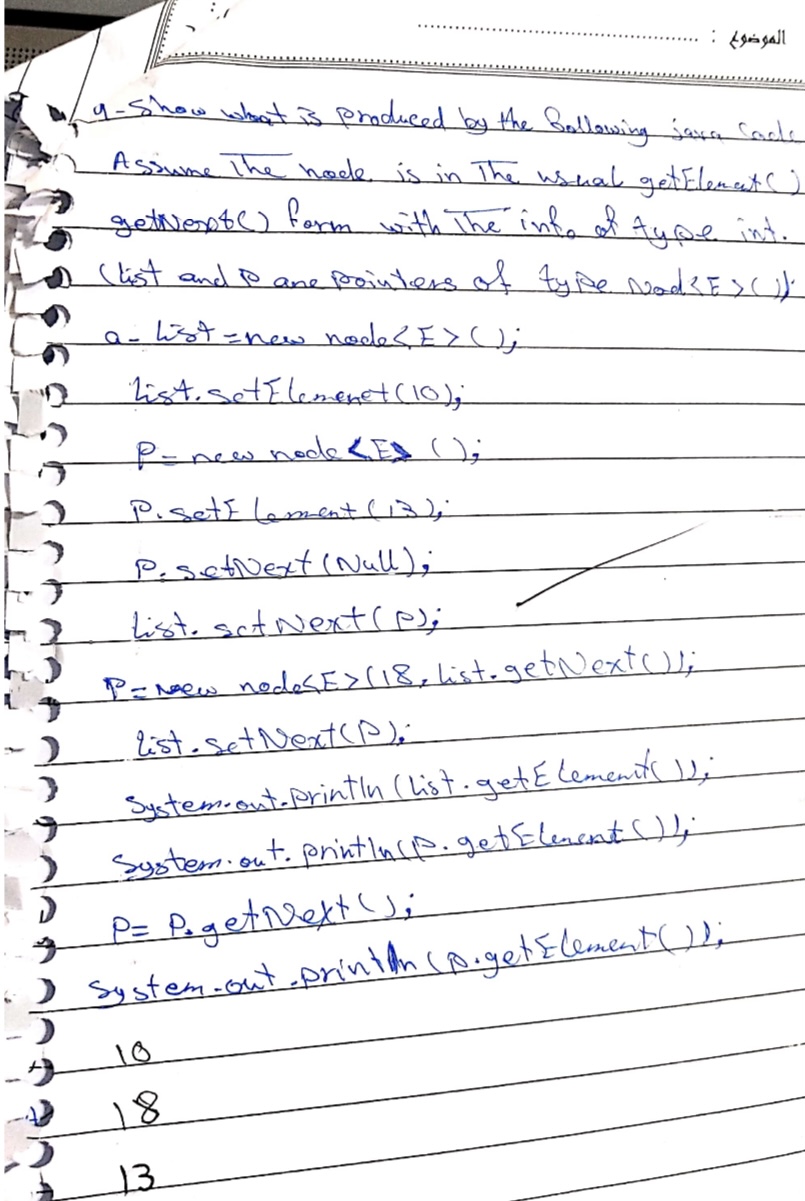 الموضوع : ........................................
9-Show what is produced by the following java Code
Assume The node is in The usual getElemat()
getNext() form with The info of type int.
(list and P are pointers of type Nod<E>());
a- List = new node<E>();
list.setElemenet(10);
P= new node <E> ();
P.setElement(13);
P.setNext(Null);
list.setNext(P);
P= new node<E>(18, list.getNext());
list.setNext(P);
System.out.println(list.getElement());
System.out.println(P.getElement());
P= P.getNext();
System.out.println(P.getElement());
10
18
13